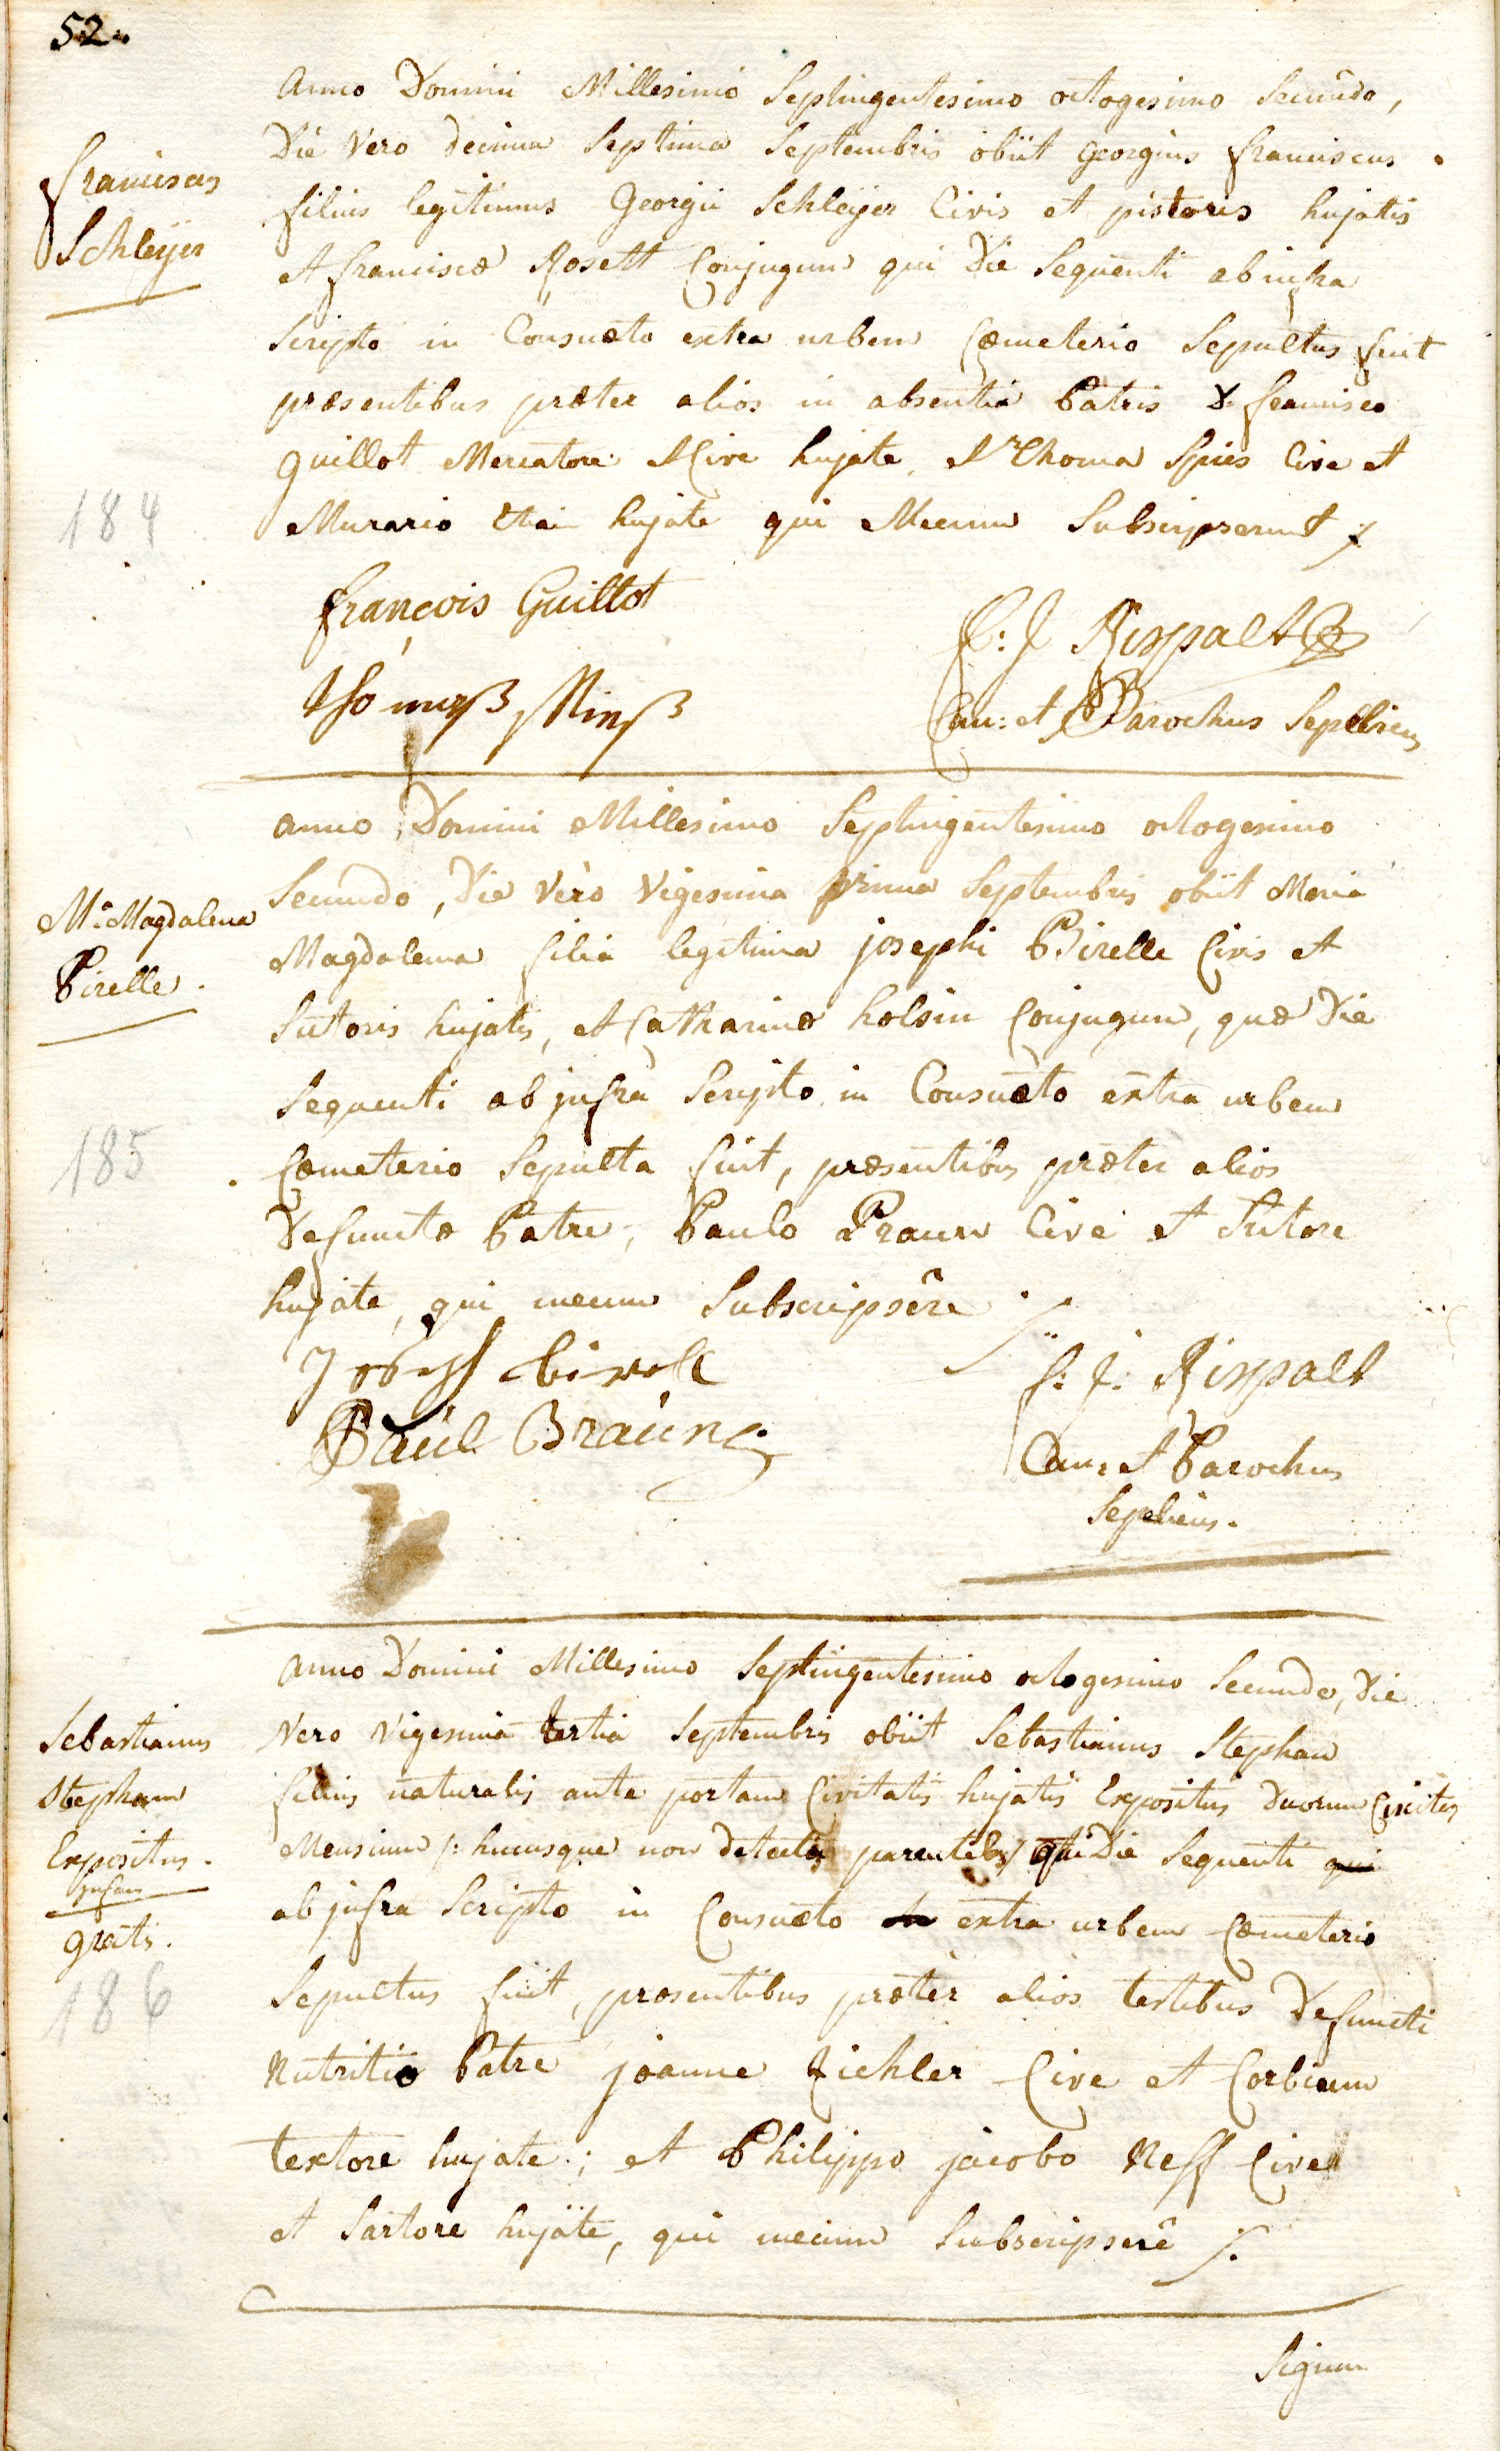 52.
Anno Domini Millesimo Septingentesimo octogesimo Secundo,
Die Vero decima Septima Septembris obiit Georgius franciscus
franciscus
Schleijer
filius legitimus Georgii Schleijer Civis et pistoris hujatis
et franciscæ Rosett Conjugum qui Die Sequenti ab infra
Scripto in Consuæto extra urbem Cœmeterio Sepultus fuit
præsentibus præter alios in absentia Patris D. francisco
Guillot Mercatore et Cive hujate, et Thoma Spies Cive et
184
Murario etiam hujate qui Mecum Subscripserunt ./.
françois Guillot
F: J Rispalt
Can: et Parochus Sepeliens
Anno Domini Millesimo Septingentesimo octogesimo
Secundo, Die Vero Vigesima prima Septembris obiit Maria
M.a Magdalena
Pirelle.
Magdalena filia legitima josephi Birelle Civis et
Sutoris hujatis, et Catharinæ holsin Conjugum, quæ Die
Sequenti ab jnfra Scripto in Consuæto extra urbem
185
Cœmeterio Sepulta fuit, præsentibus præter alios
Defunctæ Patre, Paulo Praun Cive et Sutore
hujate, qui mecum Subscripsêre ./.
Joseph birell
F: J: Rispalt
Paul Braun
Can: et Parochus
Sepeliens.
Anno Domini Millesimo Septingentesimo octogesimo Secundo, Die
Vero Vigesima tertia Septembris obiit Sebastianus Stephan
Sebastianus
Stephan
Expositus.
jnfans
gratis.
filius naturalis ante portam Civitatis hujatis Expositus Duorum Circiter
Mensium /: hucusque non detectis parentibus / qui Die Sequenti qui
ab jnfra Scripto in Consuæto extra urbem Cœmeterio
186
Sepultus fuit, præsentibus præter alios testibus Defuncti
Nutritio Patre joanne Eichler Cive et Corbium
textore hujate; et Philippo jacobo Neff Cive
et Sartore hujate, qui mecum Subscripserê ./.
Signum